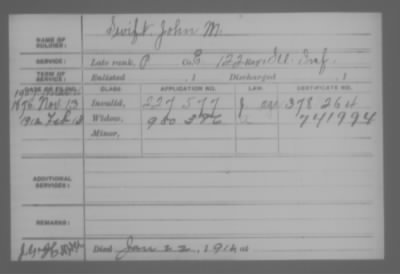 NAME OF SOLDIER: Swift, John M.
SERVICE: Late rank, P Co. E, 122 Reg't Ill. Inf.
TERM OF SERVICE: Enlisted , 1 Discharged , 1
DATE OF FILING. CLASS. APPLICATION NO. LAW. CERTIFICATE NO.
1876 Nov 13 Invalid, 227 577 378 264
1914 Feb Widow, 741994
Minor,
ADDITIONAL SERVICES:
REMARKS:
Died Jan 22, 1914 at